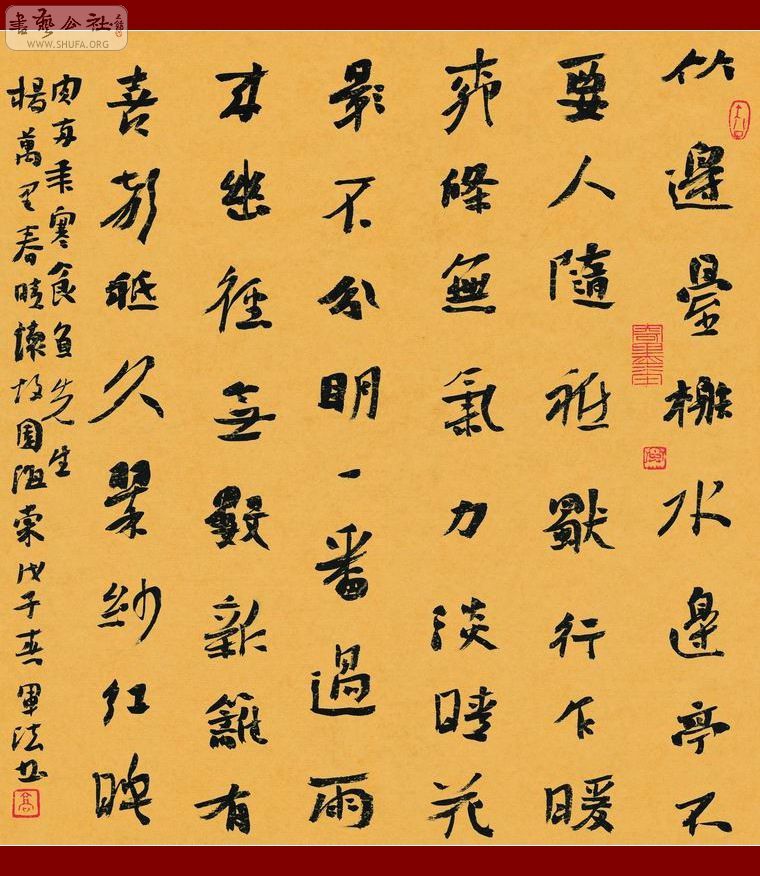 書藝公社
WWW.SHUFA.ORG
竹邊臺榭水邊亭不
要人隨祗獨行乍暖
柳條無氣力淡晴花
影不分明一番過雨
來幽徑無數新籬有
喜聲祗欠翠紗紅映
肉兩年寒食負先生
楊萬里春晴懷故園海棠戊子春軍法書